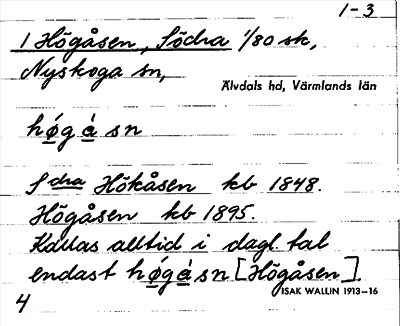 1-3
1 Högåsen, Södra 1/80 sk,
Nyskoga sn,
Älvdals hd, Värmlands län
hǿgȧ́sn
Sdra Hökåsen kb 1848.
Högåsen kb 1895.
Kallas alltid i dagl. tal
endast hǿgȧ́sn [Högåsen].
ISAK WALLIN 1913-16
4